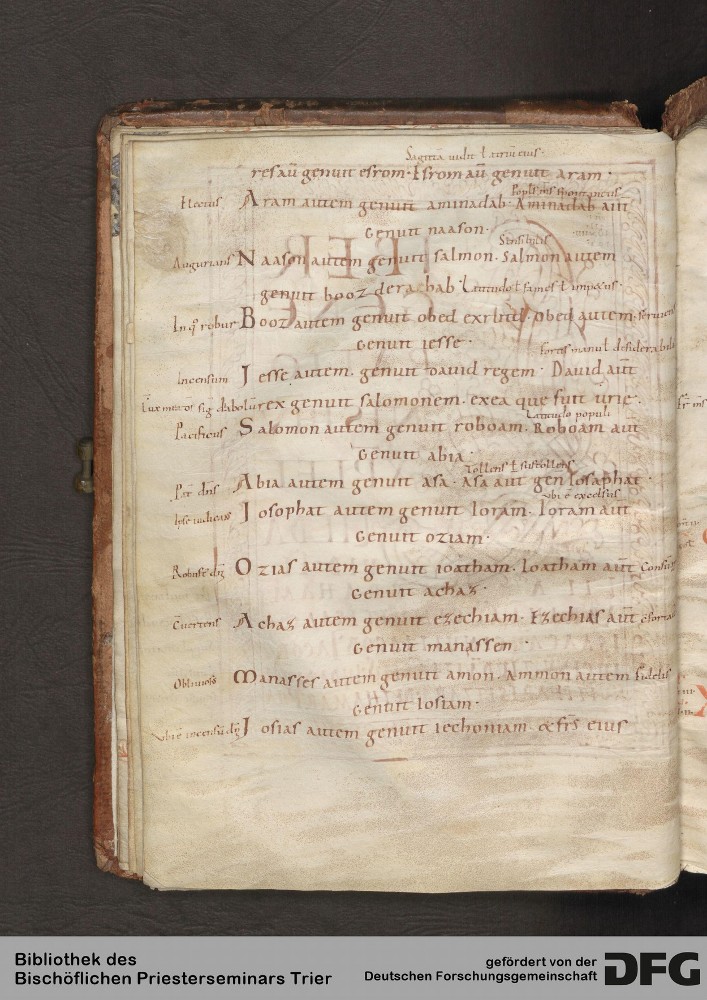 Sagitta uidit ł atriū eius ·
res aū genuit esrom · Esrom aū genuit aram ·
Popls ms spontaneus
Electus Aram autem genuit aminadab · Aminadab aut
genuit naason ·
Sensibilis
Augurians Naason autem genuit salmon · Salmon autem
genuit booz de rachab · Latitudo ł fames ł impetus ·
In q° robur Booz autem genuit obed exruth · obed autem · seruiens
genuit iesse ·
fortis manu ł desiderabilis
Incensum Iesse autem · genuit dauid regem · Dauid aut
rex genuit salomonem · exea que fuit urie ·
Latitudo populi
Pacificus Salomon autem genuit roboam · Roboam aut
genuit abia ·
Tollens ł sustollens
Pat dns Abia autem genuit asa · asa aut gen iosaphat ·
ubi ē excelsus
Ipse iudicans Iosophat autem genuit ioram · Ioram aut
genuit oziam ·
Ozias autem genuit ioatham · Ioatham aut
genuit achaz ·
Achaz autem genuit ezechiam · Ezechias aut
genuit manassen ·
Manasses autem genuit amon · Ammon autem fidelis
genuit iosiam ·
Iosias autem genuit iechoniam · & frs eius
Bibliothek des
Bischöflichen Priesterseminars Trier
gefördert von der
Deutschen Forschungsgemeinschaft DFG